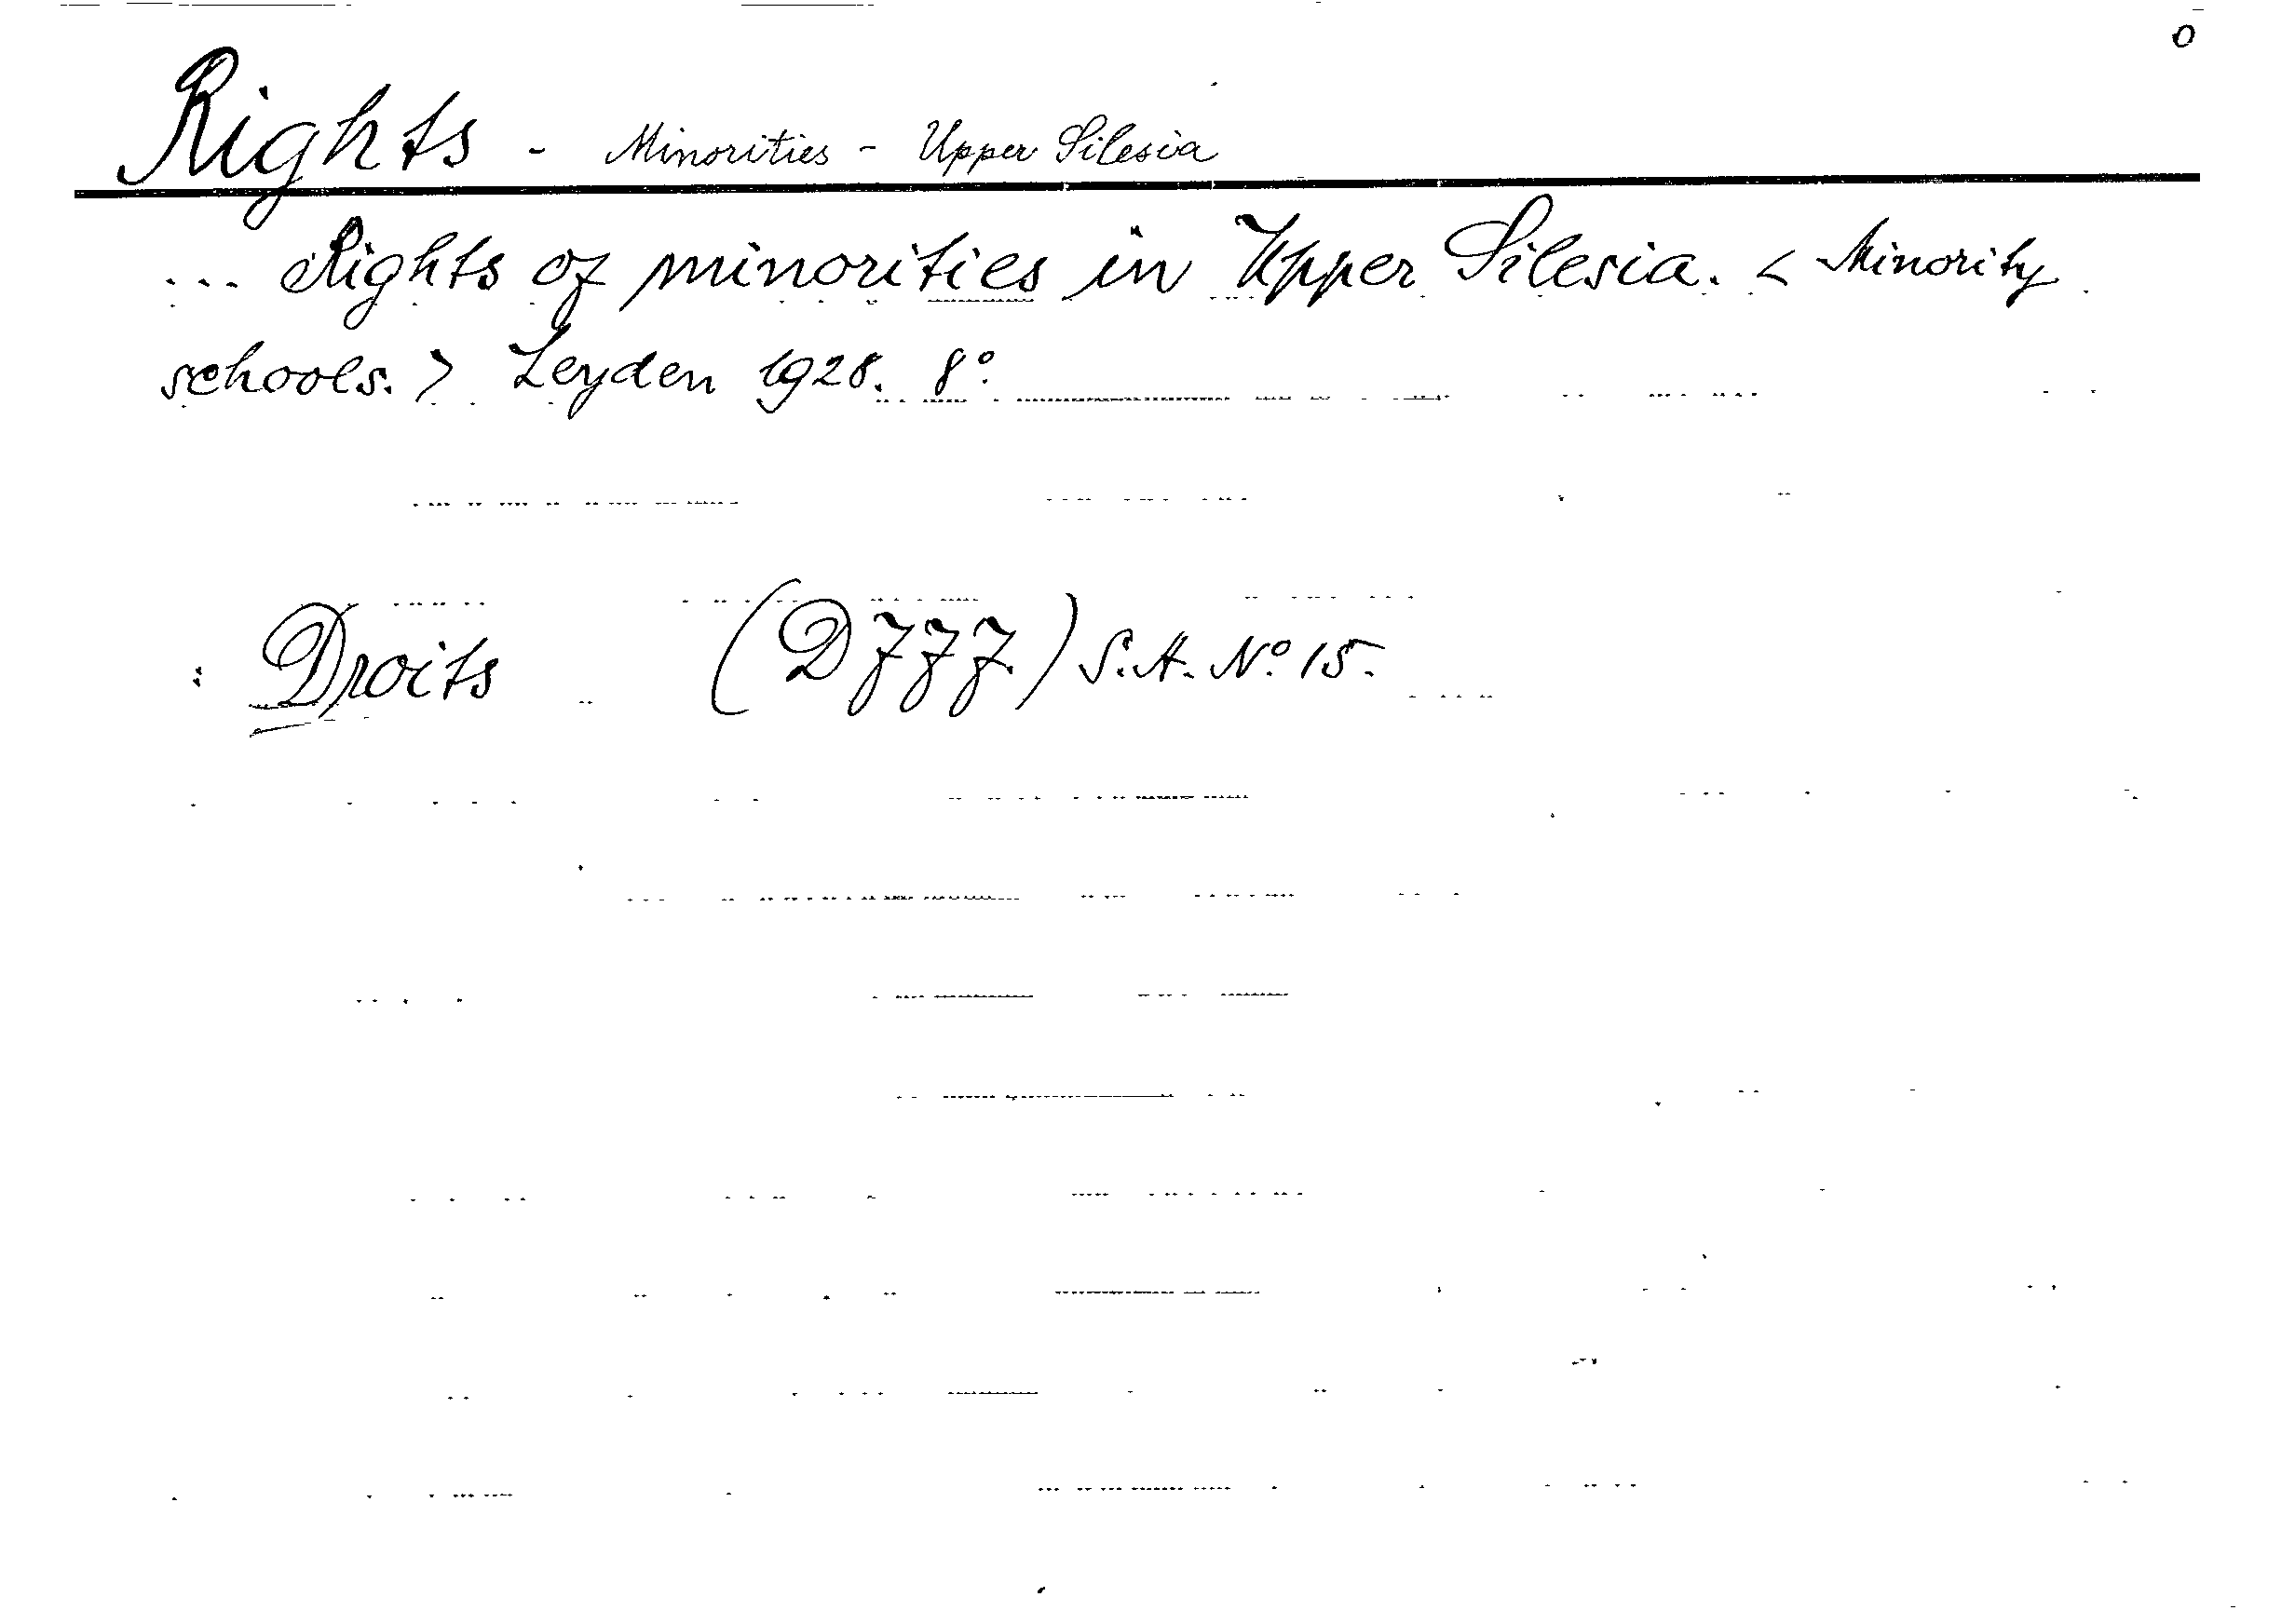 o
Rights - Minorities - Upper Silesia
... Rights of minorities in Upper Silesia. < Minority
schools. > Leyden 1928. 8°.
: Droits (DJJJ) S.A. N° 15.